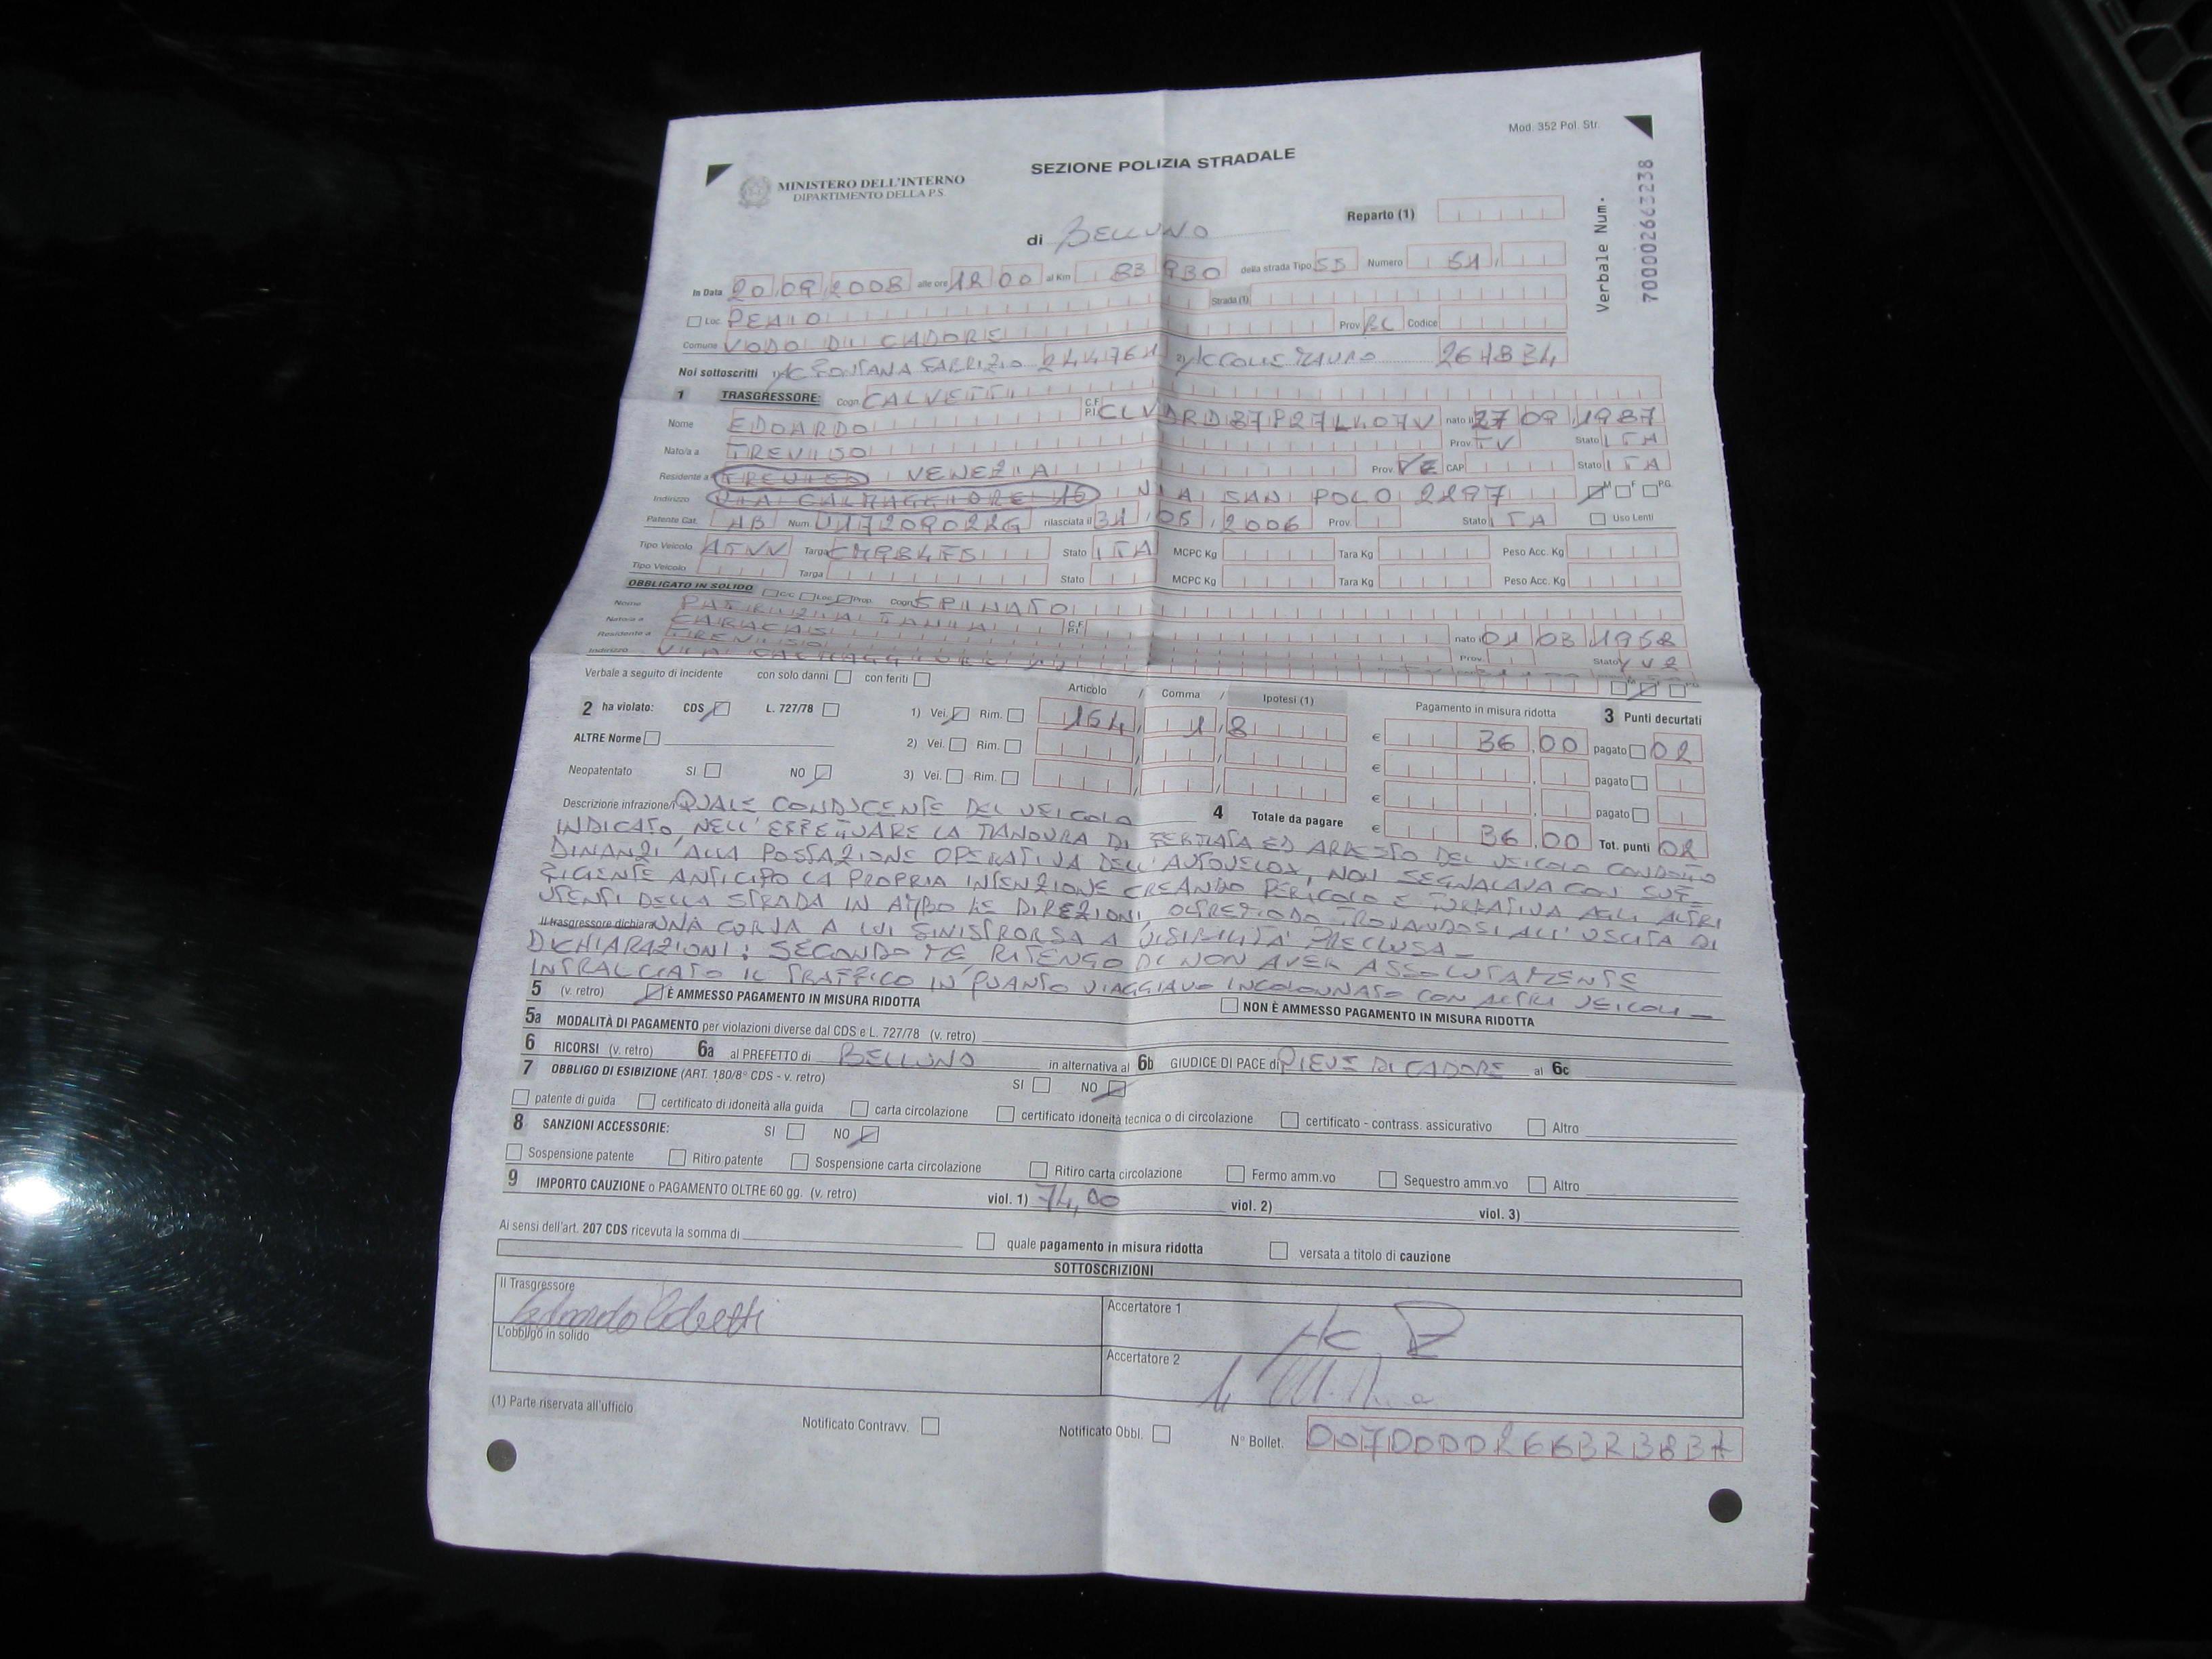 Mod. 352 Pol. Str.
SEZIONE POLIZIA STRADALE
MINISTERO DELL'INTERNO
DIPARTIMENTO DELLA P.S.
Verbale Num. 700002663238
Reparto (1)
di BELLUNO
In Data 20 09 2008 alle ore 12 00 al Km 83 930 della strada Tipo SS Numero 51
Strada (1)
Loc. PEAIO
Prov. BL Codice
Comune VODO DI CADORE
Noi sottoscritti 1) FONTANA FABRIZIO 2) MAURO
1 TRASGRESSORE: Cogn. CALVETTI
Nome EDOARDO C.F. P.I. CLVDRD87P27L407V nato il 27 09 1987
Nato/a a TREVISO Prov. TV Stato ITA
Residente a TREVISO VENEZIA Prov. VE CAP Stato ITA
Indirizzo VIA CALMAGGIORE 15 VIA SAN POLO 2297 M F P.G.
Patente Cat. AB Num. rilasciata il 31 05 2006 Prov. Stato ITA Uso Lenti
Tipo Veicolo ATVV Targa Stato ITA MCPC Kg Tara Kg Peso Acc. Kg
Tipo Veicolo Targa Stato MCPC Kg Tara Kg Peso Acc. Kg
OBBLIGATO IN SOLIDO Loc. Prop. Cogn. SPINATO
Nome PATRIZIA TANIA
Nato/a a CARACAS C.F. P.I. nato il 01 03 1958
Residente a TREVISO Prov. Stato
Indirizzo VIA CALMAGGIORE
Verbale a seguito di incidente con solo danni con feriti
Articolo / Comma / Ipotesi (1) Pagamento in misura ridotta 3 Punti decurtati
2 ha violato: CDS L. 727/78 1) Vei. Rim. 164, 1, 8 € 36,00 pagato 02
ALTRE Norme 2) Vei. Rim. € pagato
Neopatentato SI NO 3) Vei. Rim. € pagato
4 Totale da pagare € 36,00 Tot. punti 02
Descrizione infrazione/i QUALE CONDUCENTE DEL VEICOLO
INDICATO, NELL'EFFETTUARE LA MANOVRA DI FERMATA ED ARRESTO DEL VEICOLO CONDOTTO
DINANZI ALLA POSTAZIONE OPERATIVA DELL'AUTOVELOX, NON SEGNALAVA CON SUF-
FICIENTE ANTICIPO LA PROPRIA INTENZIONE CREANDO PERICOLO E TURBATIVA AGLI ALTRI
UTENTI DELLA STRADA IN AMBO LE DIREZIONI, OLTREMODO TROVANDOSI ALL'USCITA DI
Il trasgressore dichiara UNA CURVA A LUI SINISTRORSA A VISIBILITA' PRECLUSA -
DICHIARAZIONI: SECONDO ME RITENGO DI NON AVER ASSOLUTAMENTE
INTRALCIATO IL TRAFFICO IN QUANTO VIAGGIAVO INCOLONNATO CON ALTRI VEICOLI -
5 (v. retro) È AMMESSO PAGAMENTO IN MISURA RIDOTTA NON È AMMESSO PAGAMENTO IN MISURA RIDOTTA
5a MODALITÀ DI PAGAMENTO per violazioni diverse dal CDS e L. 727/78 (v. retro)
6 RICORSI (v. retro) 6a al PREFETTO di BELLUNO in alternativa al 6b GIUDICE DI PACE di PIEVE DI CADORE al 6c
7 OBBLIGO DI ESIBIZIONE (ART. 180/8° CDS - v. retro) SI NO
patente di guida certificato di idoneità alla guida carta circolazione certificato idoneità tecnica o di circolazione certificato - contrass. assicurativo Altro
8 SANZIONI ACCESSORIE: SI NO
Sospensione patente Ritiro patente Sospensione carta circolazione Ritiro carta circolazione Fermo amm.vo Sequestro amm.vo Altro
9 IMPORTO CAUZIONE o PAGAMENTO OLTRE 60 gg. (v. retro) viol. 1) 74,00 viol. 2) viol. 3)
Ai sensi dell'art. 207 CDS ricevuta la somma di quale pagamento in misura ridotta versata a titolo di cauzione
SOTTOSCRIZIONI
Il Trasgressore Edoardo Calvetti
Accertatore 1
L'obbligo in solido
Accertatore 2
(1) Parte riservata all'ufficio
Notificato Contravv. Notificato Obbl. N° Bollet.